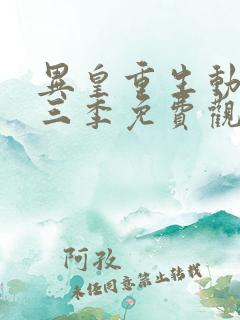 異皇重生動
三季免費觀
阿孜
未经同意禁止转载